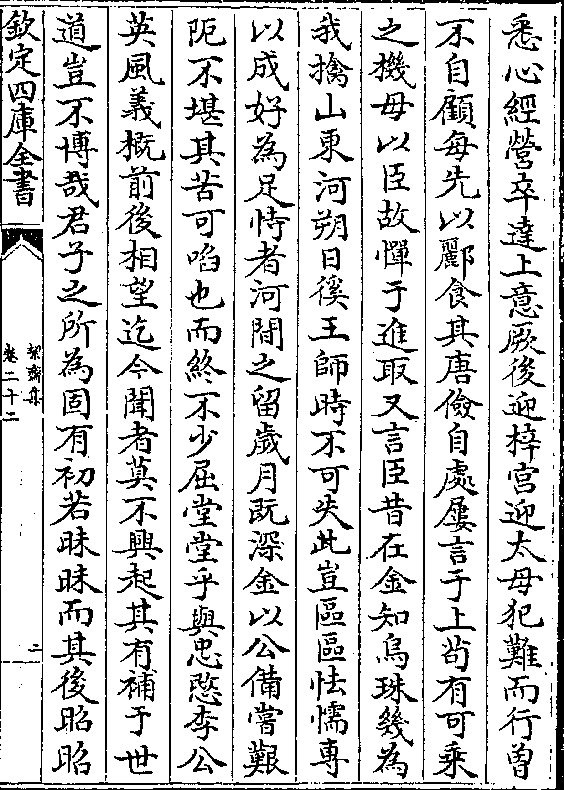 悉心經營卒達上意厥後迎梓宫迎太母犯難而行曽
不自顧每先以酈食其唐儉自處屢言于上茍有可乘
之機毋以臣故憚于進取又言臣昔在金知烏珠幾為
我擒山東河朔日徯王師時不可失此豈區區怯懦専
以成好為足恃者河間之留歲月既深金以公備嘗艱
阨不堪其苦可㗖也而終不少屈堂堂乎與忠愍李公
英風義概前後相望迄今聞者莫不興起其有補于世
道豈不博哉君子之所為固有初若昧昧而其後昭昭
欽定四庫全書
絜齋集
卷二十二
二